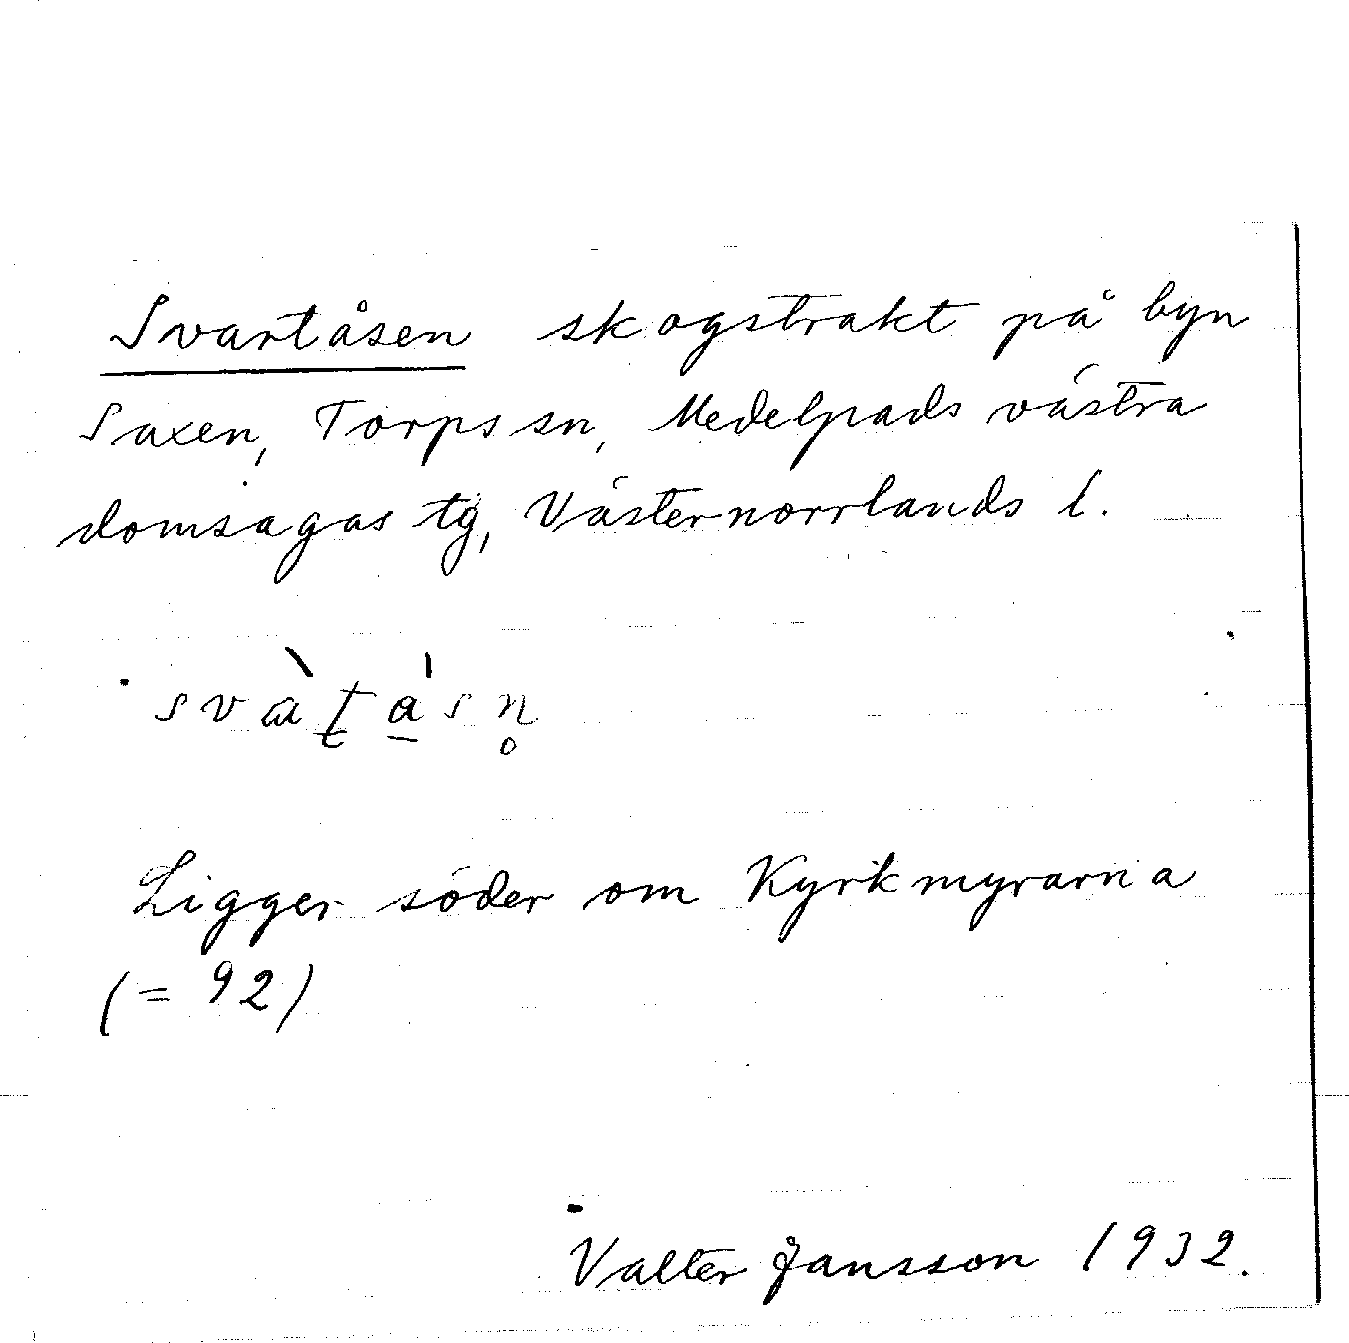 Svartåsen skogstrakt på byn
Saxen, Torps sn, Medelpads västra
domsagas tg, Västernorrlands l.
svàʈa̱'sn̥
Ligger söder om Kyrkmyrarna
(= 92)
Valter Jansson 1932.